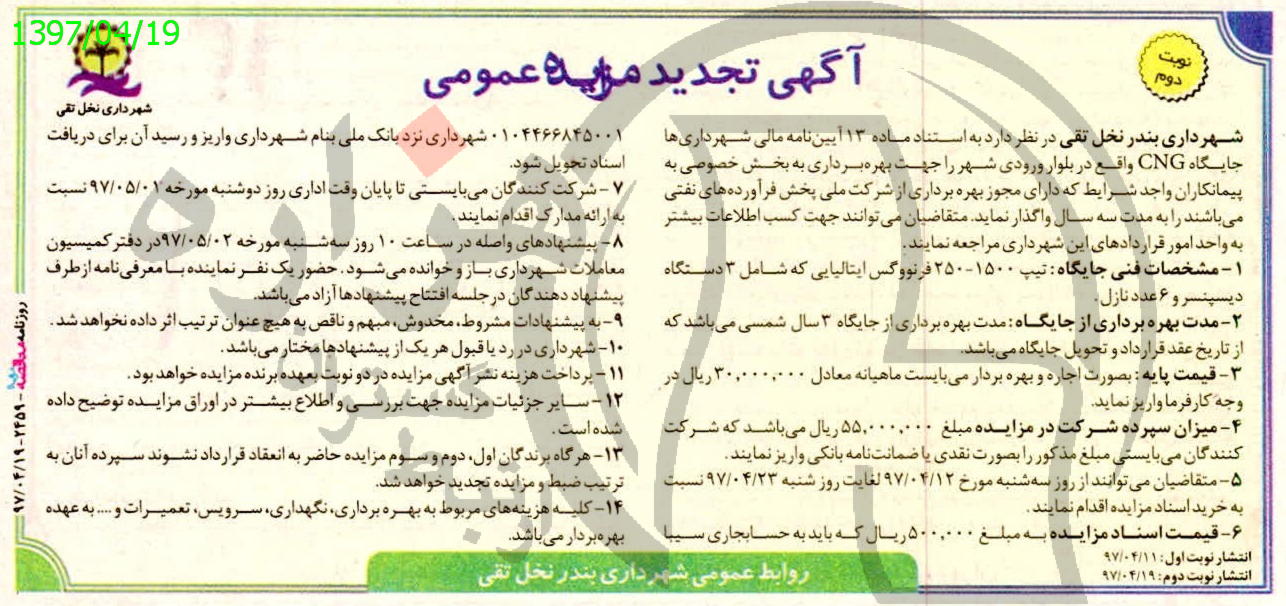 1397/04/19
شهرداری نخل تقی
نوبت
دوم
آگهی تجدید مزایده عمومی
شهرداری بندر نخل تقی در نظر دارد به استناد ماده ۱۳ آیین‌نامه مالی شهرداری‌ها
جایگاه CNG واقع در بلوار ورودی شهر را جهت بهره‌برداری به بخش خصوصی به
پیمانکاران واجد شرایط که دارای مجوز بهره برداری از شرکت ملی پخش فرآورده‌های نفتی
می‌باشند را به مدت سه سال واگذار نماید. متقاضیان می‌توانند جهت کسب اطلاعات بیشتر
به واحد امور قراردادهای این شهرداری مراجعه نمایند.
۱- مشخصات فنی جایگاه: تیپ ۱۵۰۰-۲۵۰ فرنووگس ایتالیایی که شامل ۳ دستگاه
دیسپنسر و ۶ عدد نازل.
۲- مدت بهره برداری از جایگاه: مدت بهره برداری از جایگاه ۳ سال شمسی می‌باشد که
از تاریخ عقد قرارداد و تحویل جایگاه می‌باشد.
۳- قیمت پایه: بصورت اجاره و بهره بردار می‌بایست ماهیانه معادل ۳۰,۰۰۰,۰۰۰ ریال در
وجه کارفرما واریز نماید.
۴- میزان سپرده شرکت در مزایده مبلغ ۵۵,۰۰۰,۰۰۰ ریال می‌باشد که شرکت
کنندگان می‌بایستی مبلغ مذکور را بصورت نقدی یا ضمانت‌نامه بانکی واریز نمایند.
۵- متقاضیان می‌توانند از روز سه‌شنبه مورخ ۹۷/۰۴/۱۲ لغایت روز شنبه ۹۷/۰۴/۲۳ نسبت
به خرید اسناد مزایده اقدام نمایند.
۶- قیمت اسناد مزایده به مبلغ ۵۰۰,۰۰۰ ریال که باید به حسابجاری سیبا
۰۱۰۴۴۶۶۸۴۵۰۰۱ شهرداری نزد بانک ملی بنام شهرداری واریز و رسید آن برای دریافت
اسناد تحویل شود.
۷- شرکت کنندگان می‌بایستی تا پایان وقت اداری روز دوشنبه مورخه ۹۷/۰۵/۰۱ نسبت
به ارائه مدارک اقدام نمایند.
۸- پیشنهادهای واصله در ساعت ۱۰ روز سه‌شنبه مورخه ۹۷/۰۵/۰۲ در دفتر کمیسیون
معاملات شهرداری باز و خوانده می‌شود. حضور یک نفر نماینده با معرفی‌نامه از طرف
پیشنهاد دهندگان در جلسه افتتاح پیشنهادها آزاد می‌باشد.
۹- به پیشنهادات مشروط، مخدوش، مبهم و ناقص به هیچ عنوان ترتیب اثر داده نخواهد شد.
۱۰- شهرداری در رد یا قبول هر یک از پیشنهادها مختار می‌باشد.
۱۱- پرداخت هزینه نشر آگهی مزایده در دو نوبت بعهده برنده مزایده خواهد بود.
۱۲- سایر جزئیات مزایده جهت بررسی و اطلاع بیشتر در اوراق مزایده توضیح داده
شده است.
۱۳- هرگاه برندگان اول، دوم و سوم مزایده حاضر به انعقاد قرارداد نشوند سپرده آنان به
ترتیب ضبط و مزایده تجدید خواهد شد.
۱۴- کلیه هزینه‌های مربوط به بهره برداری، نگهداری، سرویس، تعمیرات و .... به عهده
بهره‌بردار می‌باشد.
انتشار نوبت اول: ۹۷/۰۴/۱۱
انتشار نوبت دوم: ۹۷/۰۴/۱۹
روابط عمومی شهرداری بندر نخل تقی
روزنامه مناقصه مزایده - ۲۴۵۹ - ۹۷/۰۴/۱۹
هزاره